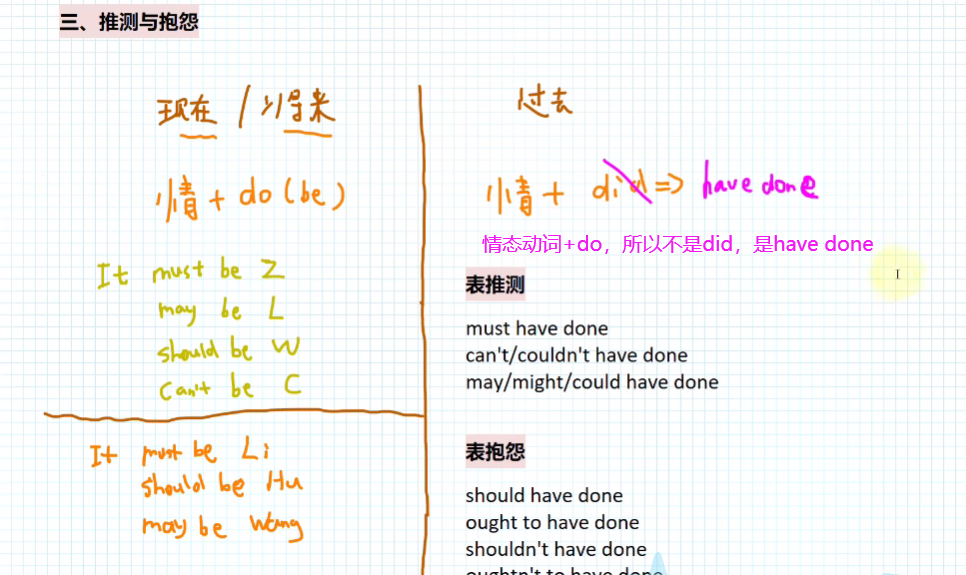 三、推测与抱怨
现在 / 将来
情 + do (be)
It must be Z
may be L
should be W
can't be C
It must be Li
should be Hu
may be Wang
过去
情 + did => have done
情态动词+do，所以不是did，是have done
表推测
must have done
can't/couldn't have done
may/might/could have done
表抱怨
should have done
ought to have done
shouldn't have done
oughtn't to have done